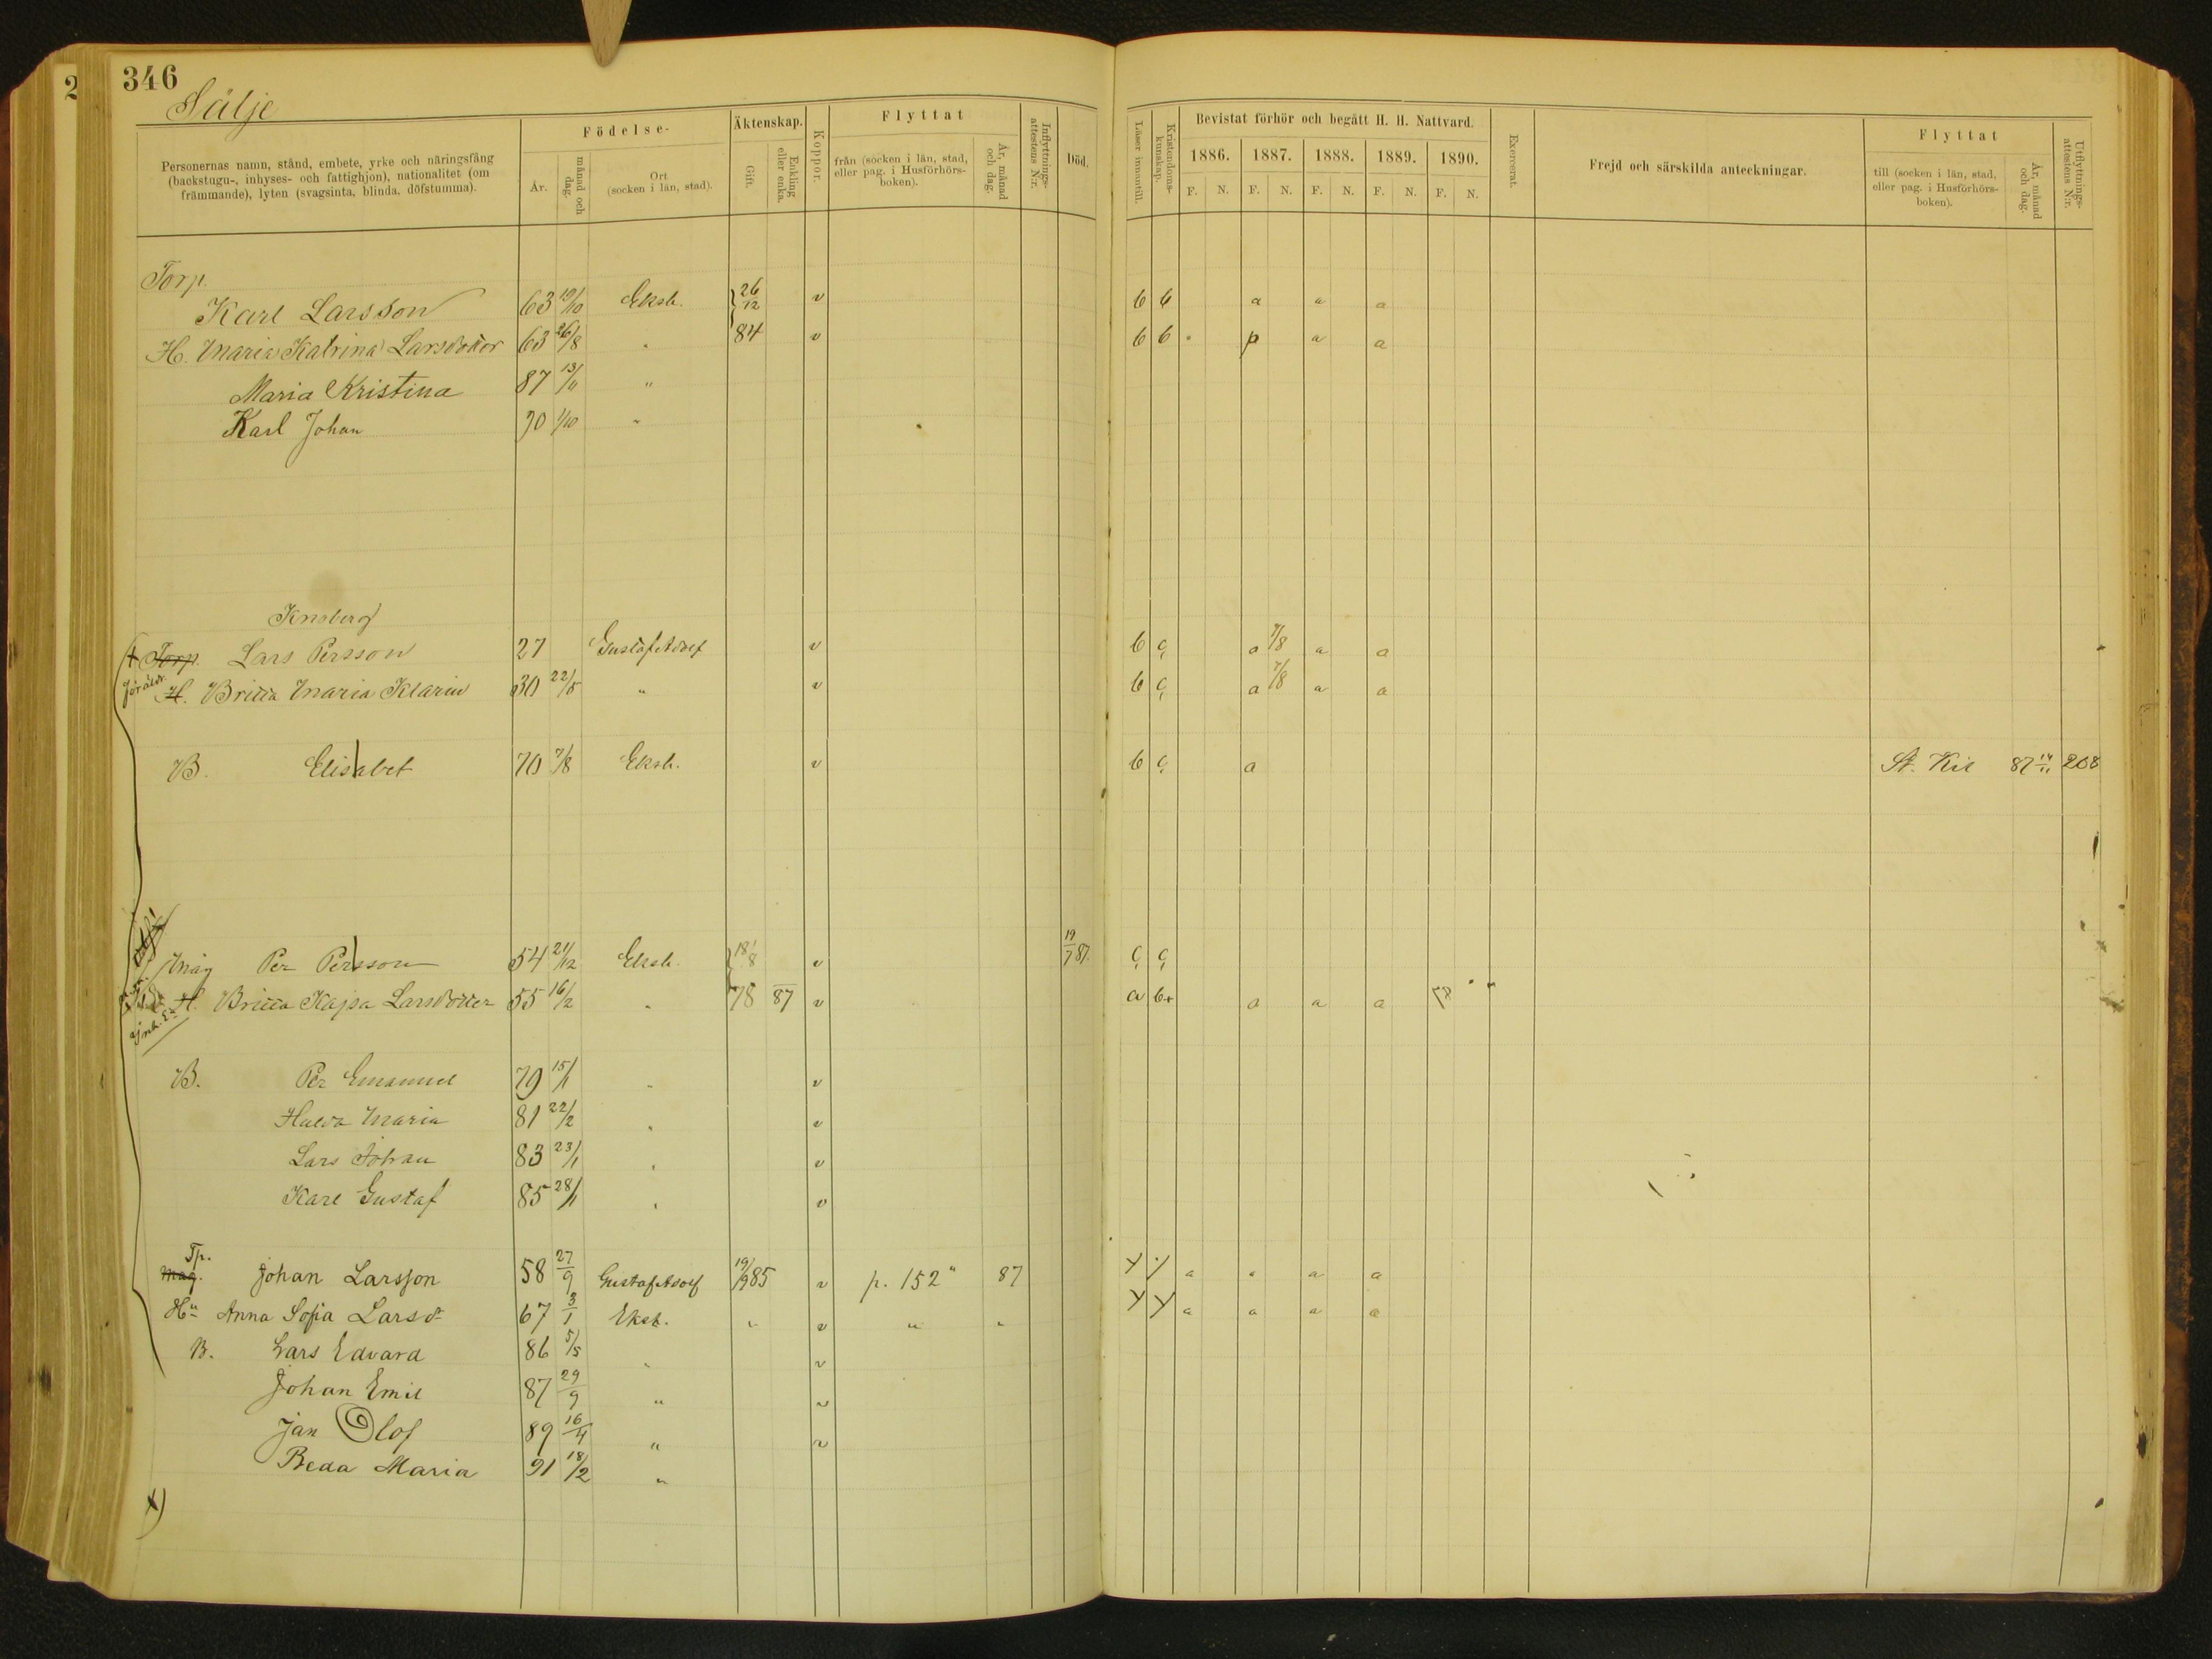 346
Sälje
Personernas namn, stånd, embete, yrke och näringsfång (backstugu-, inhyses- och fattighjon), nationalitet (om främmande), lyten (svagsinta, blinda, döfstumma).
Födelse-
År.
månad och dag.
Ort (socken i län, stad).
Äktenskap.
Gift.
Enkling eller enka.
Koppor.
Flyttat
från (socken i län, stad, eller pag. i Husförhörs-boken).
År, månad och dag.
Inflyttnings-attestens N:r.
Död.
Läser innantill.
Kristendoms-kunskap.
Bevistat förhör och begått H. H. Nattvard.
1886. 1887. 1888. 1889. 1890.
F. N. F. N. F. N. F. N. F. N.
Exercerat.
Frejd och särskilda anteckningar.
Flyttat
till (socken i län, stad, eller pag. i Husförhörs-boken).
År, månad och dag.
Utflyttnings-attestens N:r.
Torp.
Karl Larsson 63 19/10 Eksh. 26/12 v b b a a a
H. Maria Katrina Larsdotter 63 26/8 " 84 v b b p a a
Maria Kristina 87 13/11 "
Karl Johan 90 1/10 "
Torp. Lars Persson 27 Gustaf Adolf v b c a 7/8 a a
föräldr.
H. Britta Maria Klarin 30 22/5 " v b c a 7/8 a a
B. Elisabet 70 7/8 Eksh. v b c a St. Kil 87 14/11 208
Måg Per Persson 54 21/12 Eksh. 18/8 v 19/7 87. c c
H. Britta Kajsa Larsdotter 55 16/2 " 78 87 v a b+ a a a
B. Per Emanuel 79 15/1 " v
Hulda Maria 81 22/2 " v
Lars Johan 83 23/1 " v
Karl Gustaf 85 28/1 " v
Tp.
Måg. Johan Larsson 58 27/9 Gustaf Adolf 19/9 85 v p. 152 " 87 a a a a
Hu Anna Sofia Larsd 67 3/1 Eksh. " v " " a a a a
B. Lars Edvard 86 5/5 " v
Johan Emil 87 29/9 " v
Jan Olof 89 16/4 " v
Beda Maria 91 18/2 "